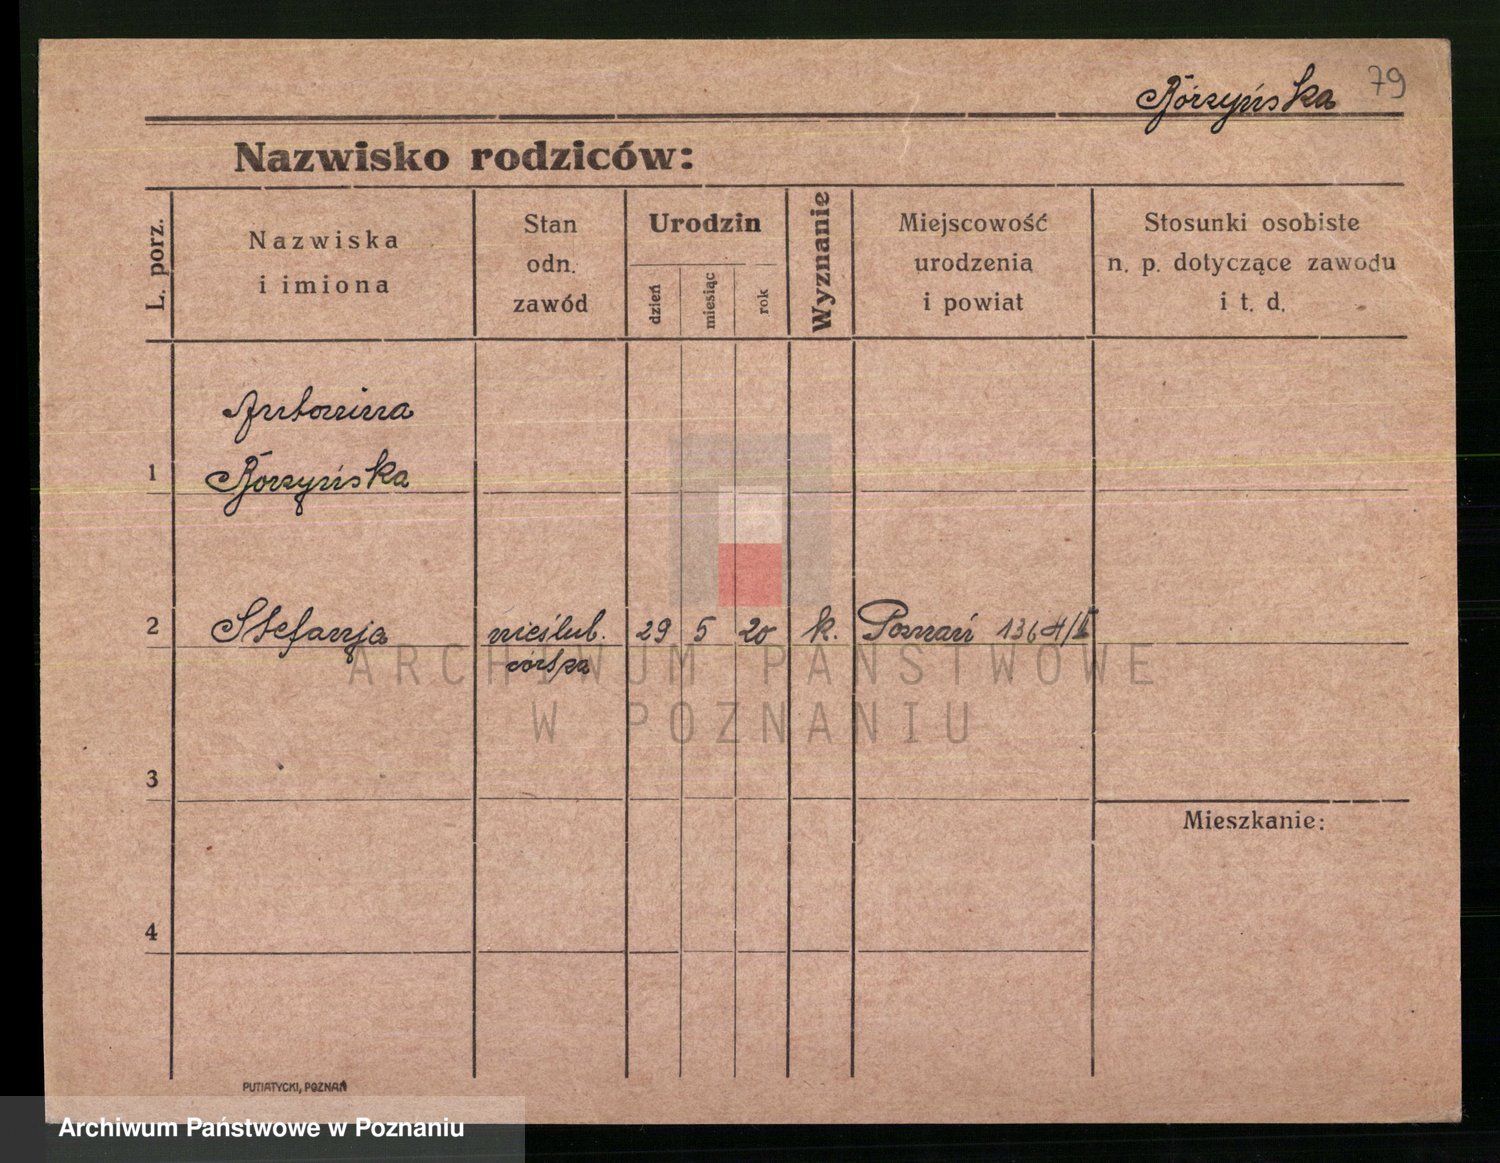 Bórzyńska 79
Nazwisko rodziców:
L. porz.
Nazwiska
i imiona
Stan
odn.
zawód
Urodzin
dzień
miesiąc
rok
Wyznanie
Miejscowość
urodzenia
i powiat
Stosunki osobiste
n. p. dotyczące zawodu
i t. d.
Antonina
1 Bórzyńska
2 Stefanja nieślub. 29 5 20 k. Poznań 1364/II
córka
3
Mieszkanie:
4
PUTIATYCKI, POZNAŃ
ARCHIWUM PAŃSTWOWE
W POZNANIU
Archiwum Państwowe w Poznaniu